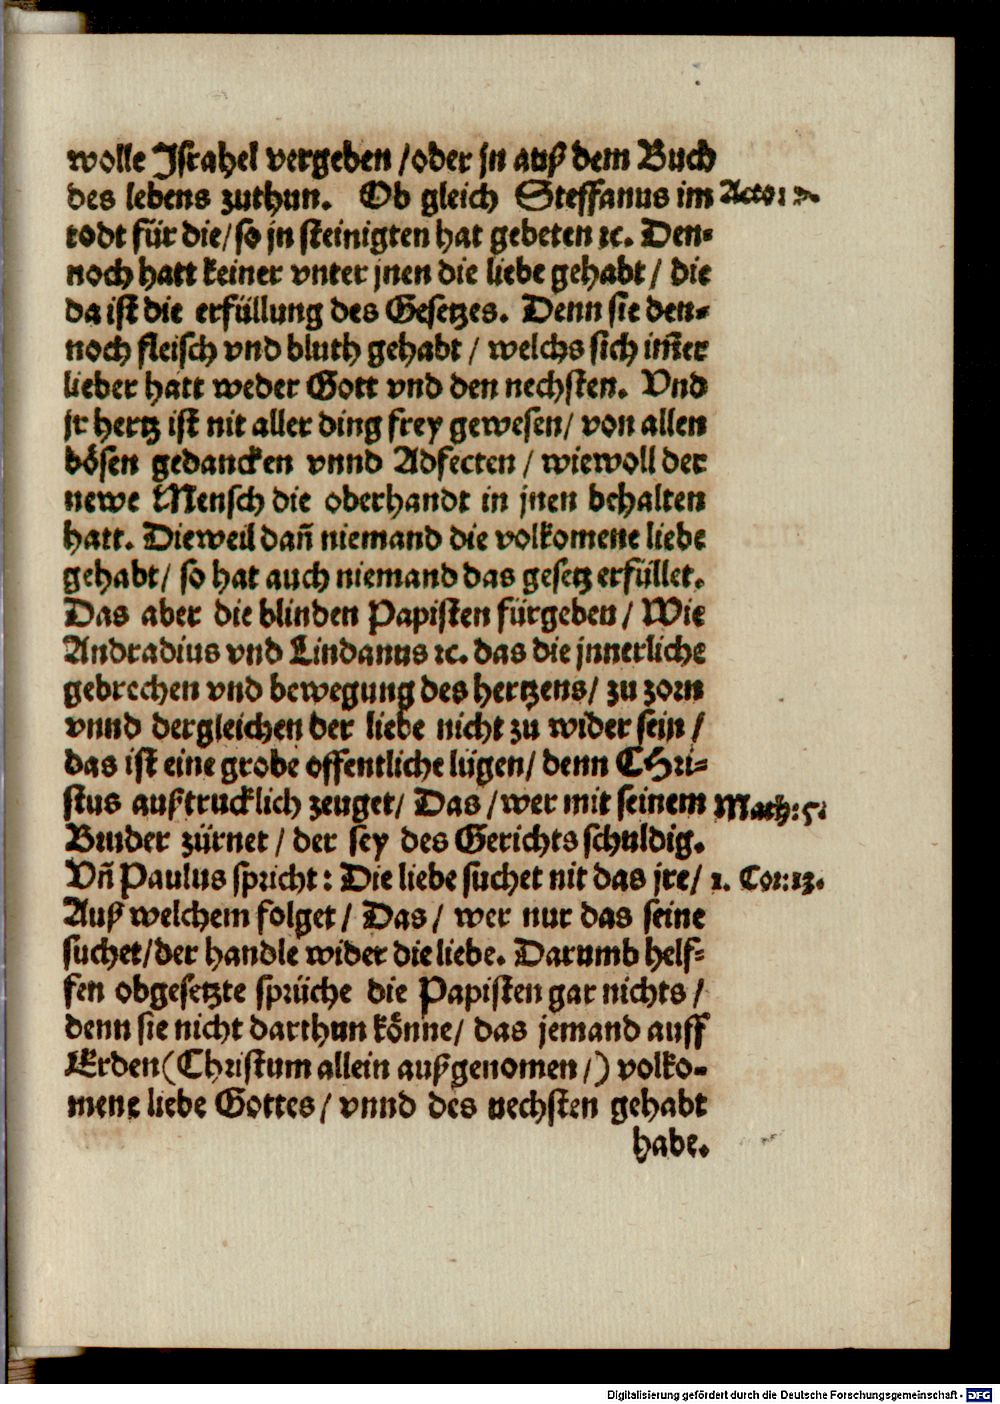 wolle Israhel vergeben /oder jn auß dem Buch
des lebens zuthun. Ob gleich Steffanus im Acto: 7.
todt für die/ so jn steinigten hat gebeten ꝛc. Den⸗
noch hatt keiner vnter jnen die liebe gehabt / die
da ist die erfüllung des Gesetzes. Denn sie den⸗
noch fleisch vnd bluth gehabt / welchs sich im̃er
lieber hatt weder Gott vnd den nechsten. Vnd
jr hertz ist nit aller ding frey gewesen/ von allen
bösen gedancken vnnd Adfecten / wiewoll der
newe Mensch die oberhandt in jnen behalten
hatt. Dieweil dañ niemand die volkomene liebe
gehabt/ so hat auch niemand das gesetz erfüllet.
Das aber die blinden Papisten fürgeben / Wie
Andradius vnd Lindanus ꝛc. das die jnnerliche
gebrechen vnd bewegung des hertzens/ zu zorn
vnnd dergleichen der liebe nicht zu wider sein /
das ist eine grobe offentliche lügen/ denn CHri⸗
stus außtrucklich zeuget/ Das /wer mit seinem Math: 5.
Bruder zürnet / der sey des Gerichts schuldig.
Vñ Paulus spricht : Die liebe suchet nit das jre/ 1. Cor: 13.
Auß welchem folget / Das / wer nur das seine
suchet/der handle wider die liebe. Darumb helf⸗
fen obgesetzte sprüche die Papisten gar nichts /
denn sie nicht darthun könne/ das jemand auff
Erden (Christum allein außgenomen /) volko⸗
mene liebe Gottes / vnnd des nechsten gehabt
habe.
Digitalisierung gefördert durch die Deutsche Forschungsgemeinschaft - DFG